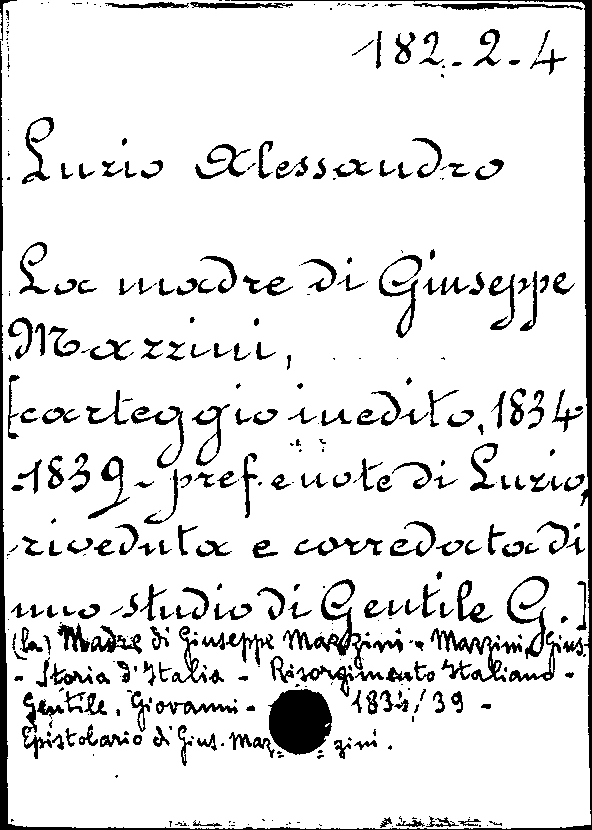 182-2-4
Luzio Alessandro
La madre di Giuseppe
Mazzini,
[carteggio inedito, 1834
-1839- pref. e note di Luzio,
riveduta e corredata di
uno studio di Gentile G.]
(la) Madre di Giuseppe Mazzini - Mazzini, Gius.
- Storia d'Italia - Risorgimento Italiano -
Gentile, Giovanni - 1834/39 -
Epistolario di Gius. Maz= =zini.